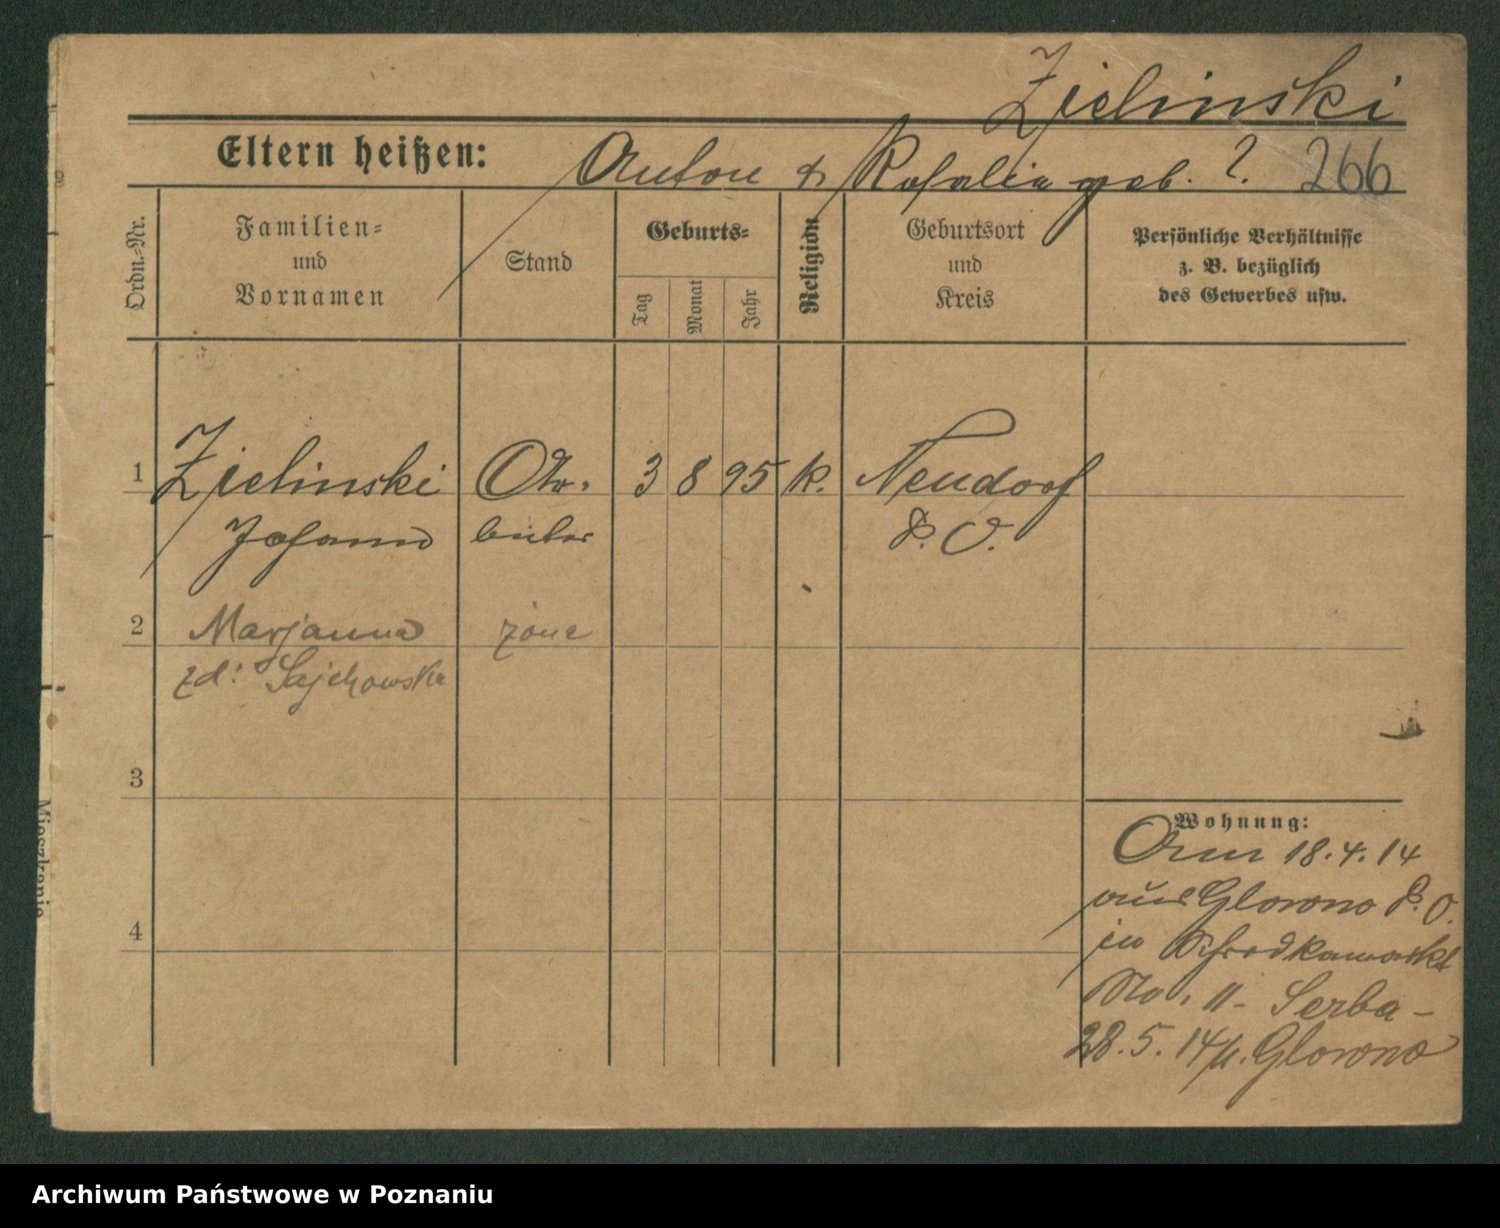 Zielinski
Eltern heißen: Anton & Rosalia geb. ?. 266
Ordn.-Nr.
Familien-
und
Vornamen
Stand
Geburts-
Tag
Monat
Jahr
Religion
Geburtsort
und
Kreis
Persönliche Verhältnisse
z. B. bezüglich
des Gewerbes usw.
1 Zielinski Ar- 3 8 95 k. Neudorf
Johann beiter P. O.
2 Marjanna żona
zd:
3
4
Wohnung:
Am 18.4.14
aus Glowno P. O.
in Schrodkamarkt
No. 11 - Serba -
28.5.14 n. Glowno
Mieszkanie
Archiwum Państwowe w Poznaniu